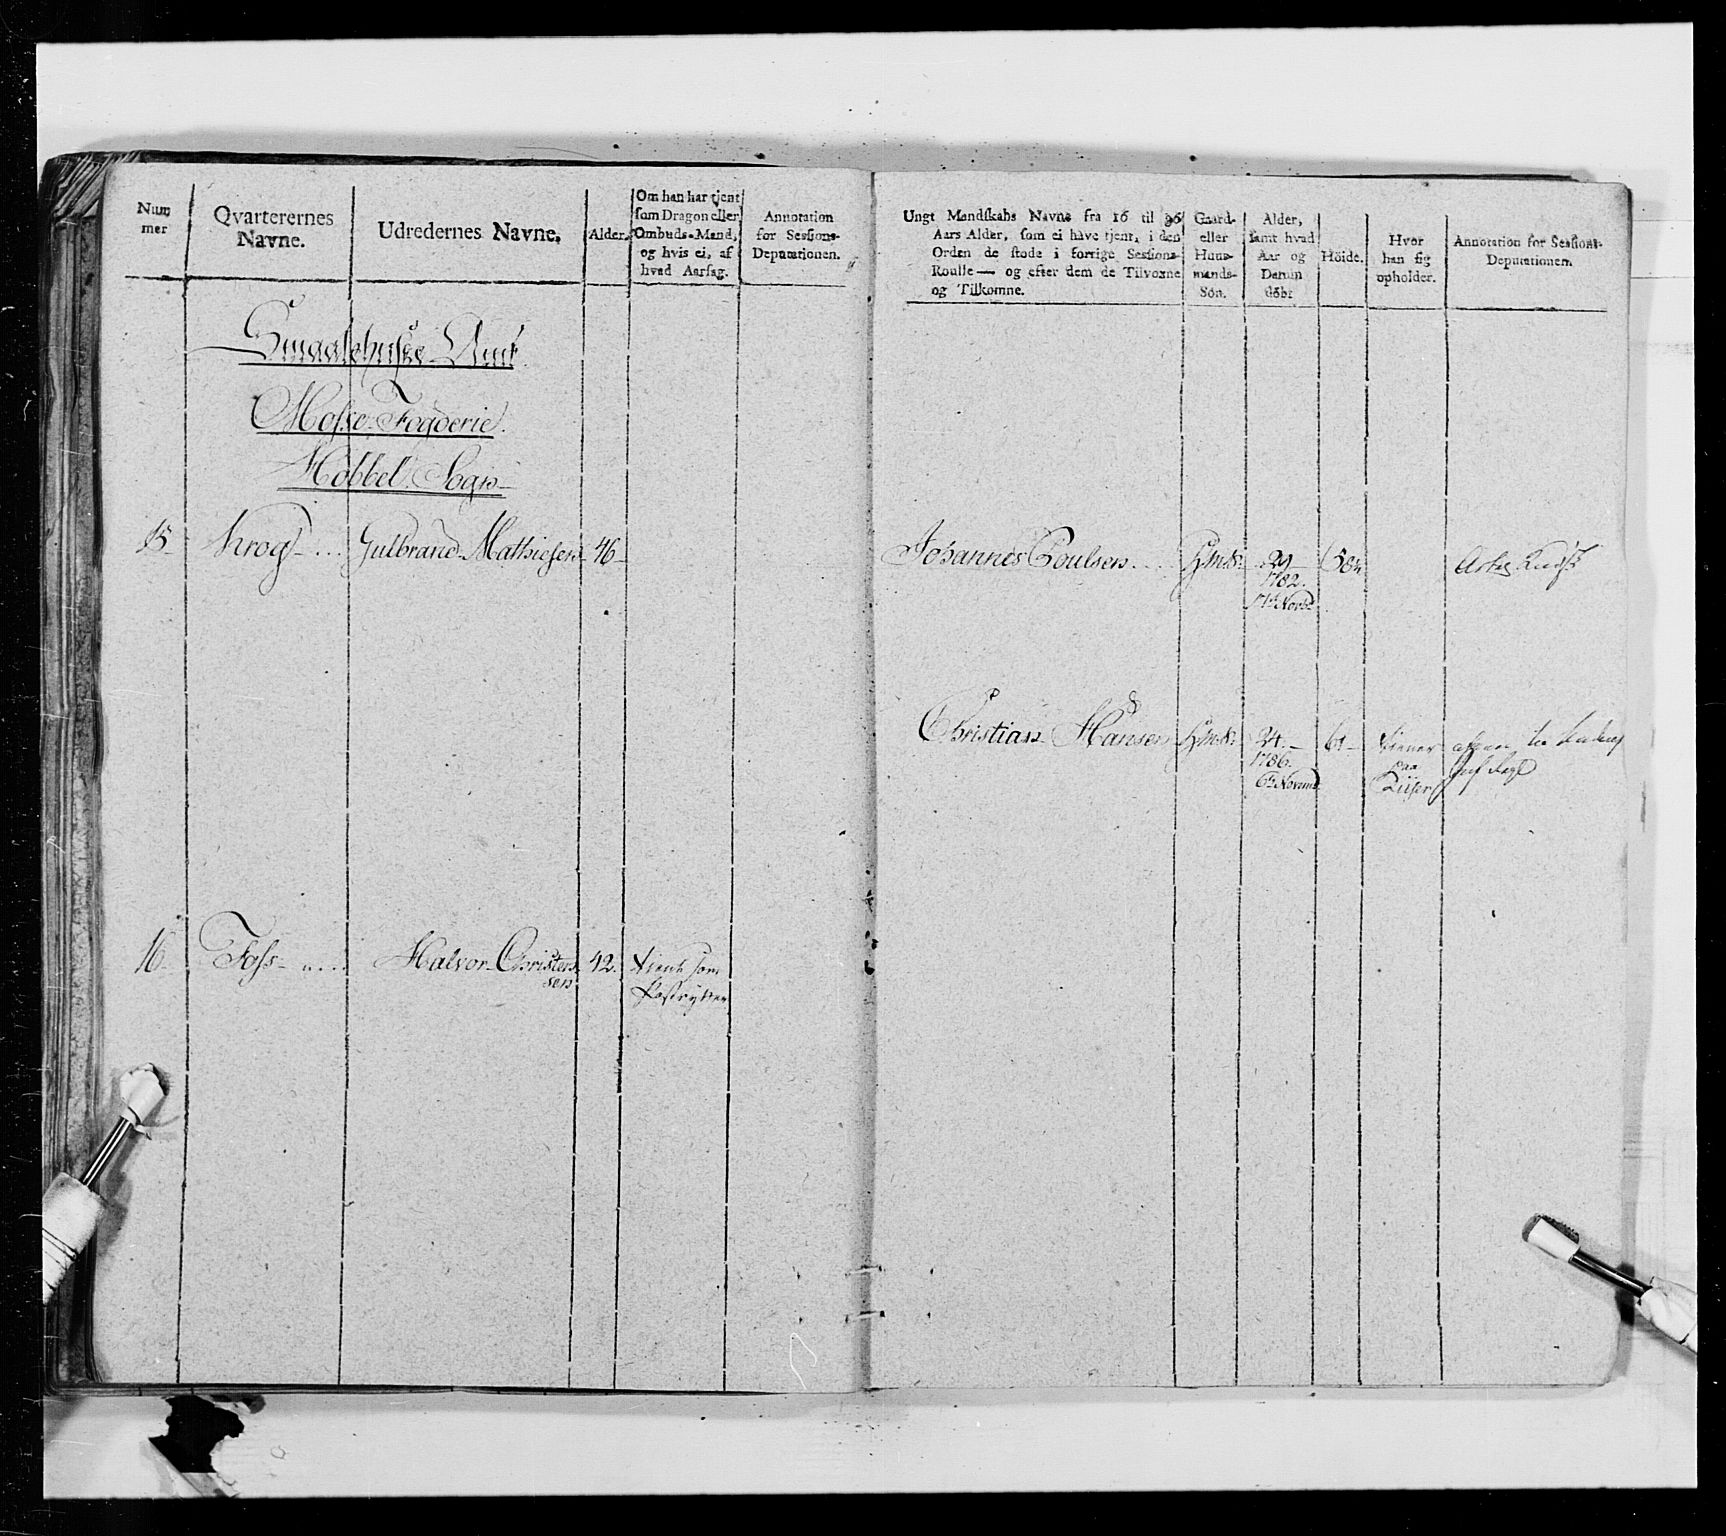 Num
mer
Qvarterernes
Navne.
Udredernes Navne.
Alder.
Om han har tjent
som Dragon eller
Ombuds-Mand,
og hvis ei, af
hvad Aarsag.
Annotation
for Sessions-
Deputationen.
Smaalehnene Amt
Mosse Fogderie.
Hobbel Sogn
15 Krog Gulbrand Mathiesen 46
16 Foss Halvor Christen- 42. tient som
sen
Ungt Mandskabs Navne fra 16 til 36
Aars Alder, som ei have tjent, i den
Orden de stode i forrige Sessions-
Roulle — og efter dem de Tilvoxne
og Tilkomne.
Gaard-
eller
Huus-
mands-
Søn.
Alder,
samt hvad
Aar og
Datum
född
Höide.
Hvor
han sig
opholder.
Annotation for Sessions-
Deputationen.
Johannes Poulsen Hms. 29
1782.
17de Novbr
Christian Hansen Hms. 24. 61 tiener
1786. paa
6te Novemb